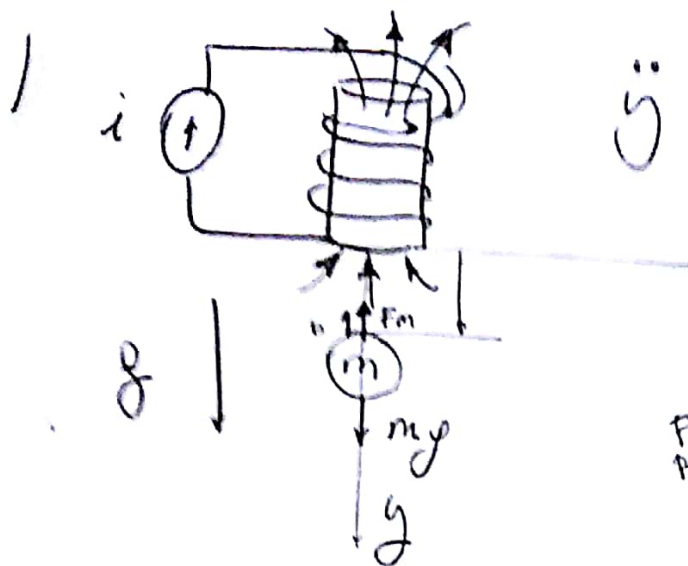 1
i
ÿ
Fm
g
m
mg
y